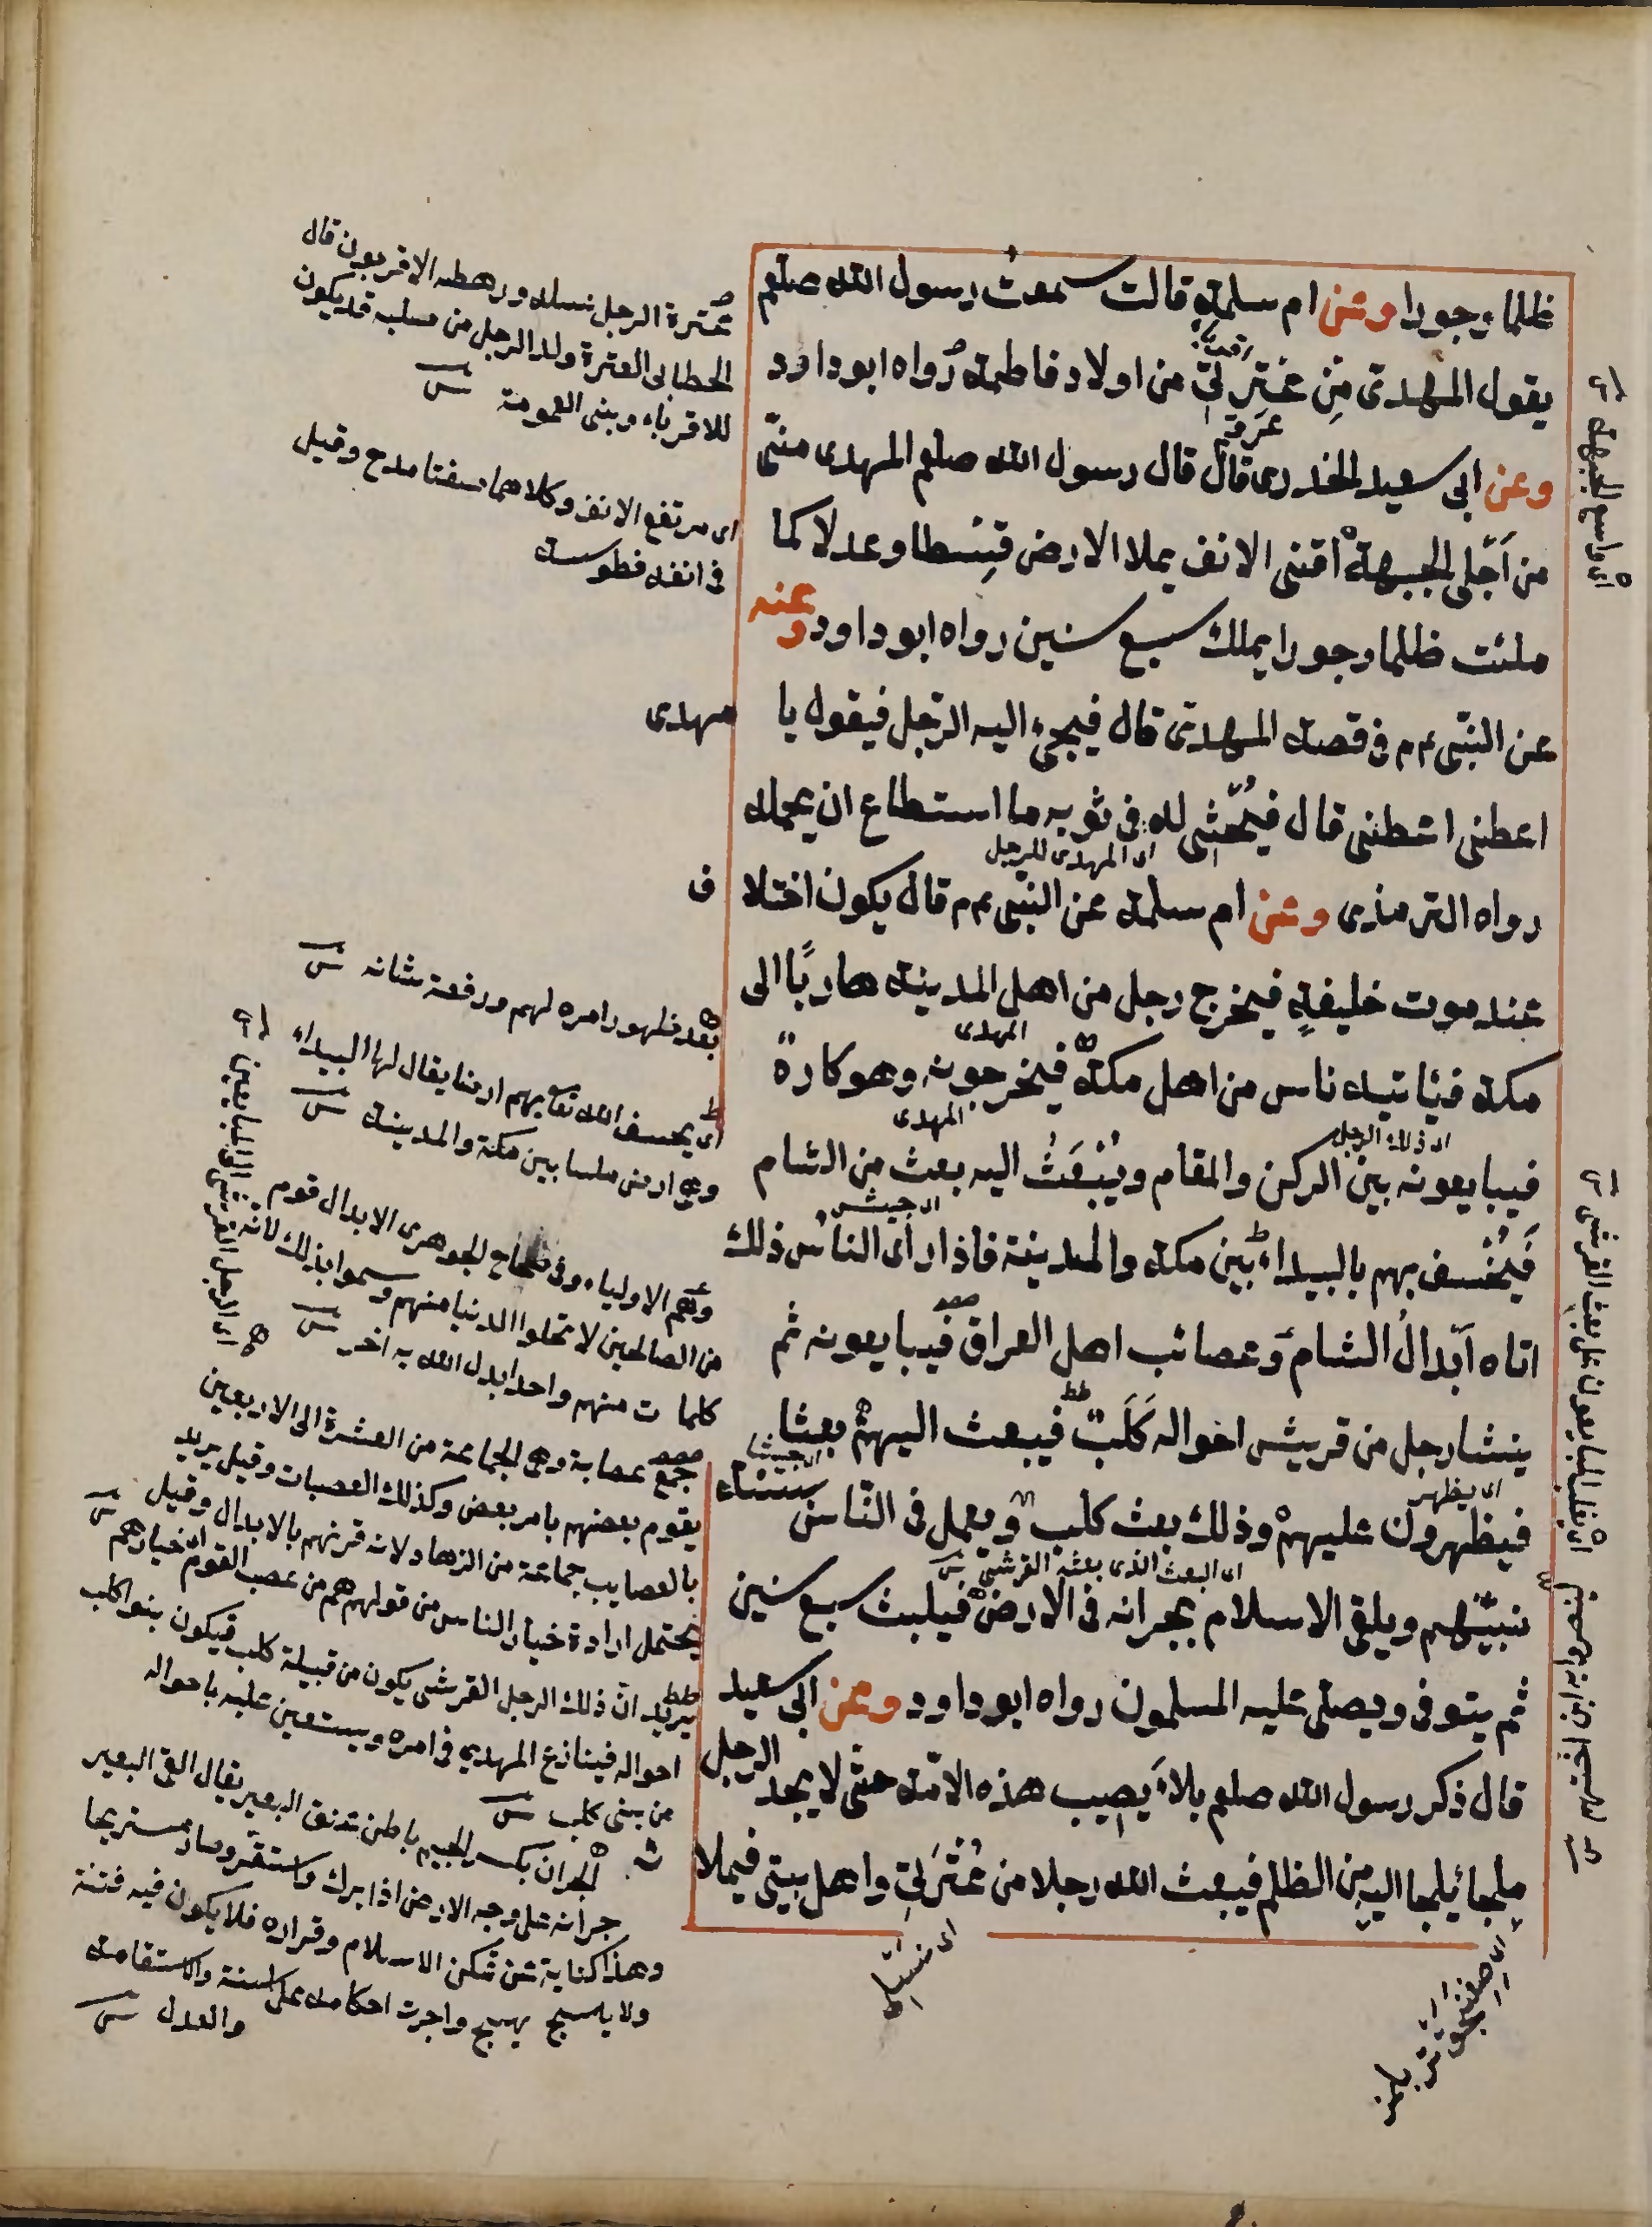 ظلما وجورا وعن ام سلمة قالت سمعت رسول الله صلعم
يقول المهدى مِن عترتى من اولاد فاطمة رواه ابوداود
وعن ابى سعيد الخدرى قال قال رسول الله صلعم المهدى منّى
من اَجْلى الجبهة اقنى الانف يملا الارض قِسْطا وعدلا كما
ملئت ظلما وجورا يملك سبع سنين رواه ابو داود وعنه
عن النبى عم فى قصة المهدى قال فيجىء اليه الرّجل فيقول يا مهدى
اعطنى اعطنى قال فيُحْثى له فى ثوبه ما استطاع ان يحمله
اى المهدى للرجل
رواه الترمذى وعن ام سلمة عن النبى عم قال يكون اختلاف
عند موت خليفةٍ فيخرج رجل من اهل المدينة هاربًا الى
المهدى
مكة فياتيه ناس من اهل مكة فيخرجونه وهو كارهٌ
المهدى
اى ذلك الرجل
فيبايعونه بين الركن والمقام ويُبْعَثُ اليه بعث من الشام
اى جيش
فَيُخْسف بهم بالبيداء بين مكة والمدينة فاذا راى الناس ذلك
اتاه اَبدالُ الشام وعصائب اهل العراق فيبايعونه ثم
ينشا رجل من قريش اخواله كَلَب فيبعث اليهم بعثا
اى جيشا
اى يظهر
فيظهرون عليهم وذلك بعث كلب ويعمل فى النّاس بسنّة
اى البعث الذى بعثه القرشى
نبيّهم ويلقى الاسلام بجرانه فى الارض فيلبث سبع سنين
ثم يتوفى ويصلى عليه المسلمون رواه ابو داود وعن ابى سعيد
قال ذكر رسول الله صلعم بلاء يصيب هذه الامّة حتى لا يجد الرجل
ملجا يلجا اليه من الظلم فيبعث الله رجلا من عترتى واهل بيتى فيملا
عترة الرجل نسله ورهطه الاقربون قال
الخطابى العترة ولد الرجل من صلبه قد يكون
للاقرباء وبنى العمومة
اى مرتفع الانف وكلاهما صفتا مدح وقيل
فى انفه فطوسة
بعد ظهور امره لهم ورفعة شانه
اى يخسف الله تعا بهم ارضا يقال لها البيداء
وهى ارض ملسا بين مكة والمدينة
وهم الاولياء وفى صحاح الجوهرى الابدال قوم
من الصالحين لا تخلوا الدنيا منهم وسموا بذلك لانه
كلما مات منهم واحد ابدل الله به اخر
جمع عصابة وهى الجماعة من العشرة الى الاربعين
يقوم بعضهم بامر بعض وكذلك العصبات وقيل يريد
بالعصايب جماعة من الزهاد لانه قرنهم بالابدال وقيل
يحتمل ارادة خيار الناس من قولهم هم من عصب القوم اى خيارهم
يريد ان ذلك الرجل القرشى يكون من قبيلة كلب فيكون بنوا كلب
اخواله فينازع المهدى فى امره ويستعين عليه باخواله
من بنى كلب
الجران بكسر الجيم باطن عنق البعير يقال القى البعير
جرانه على وجه الارض اذا برك واستقر وصار مستريحا
وهذا كناية عن تمكن الاسلام وقراره فلا يكون فيه فتنة
ولا يهيج واجرت احكامه على السنة والاستقامة
والعدل
اى واسع الجبهة